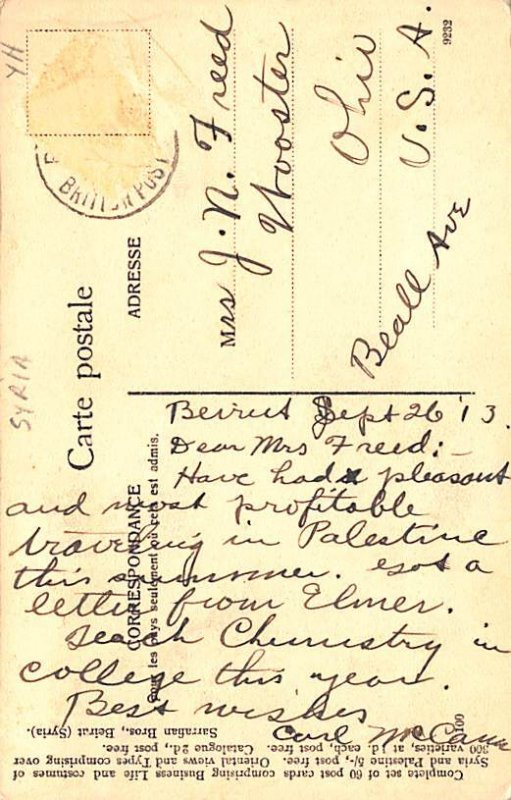 YH
SYRIA
Carte postale
ADRESSE
BRITISH POST
Mrs J. N. Freed
Wooster
Ohio
U. S. A.
Beall Ave
9232
CORRESPONDANCE
les pays seulement où cela est admis.
Beirut Sept 26 '13.
Dear Mrs Freed:-
Have had a pleasant
and most profitable
traveling in Palestine
this summer. Got a
letter from Elmer.
Teach Chemistry in
college this year.
Best wishes
Carl McCann
100
Complete set of 60 post cards comprising Business Life and costumes of
Syria and Palestine 5/-, post free. Oriental views and Types comprising over
300 varieties, at 1d. each, post free. Catalogue 2d., post free.
Sarrafian Bros., Beirut (Syria).